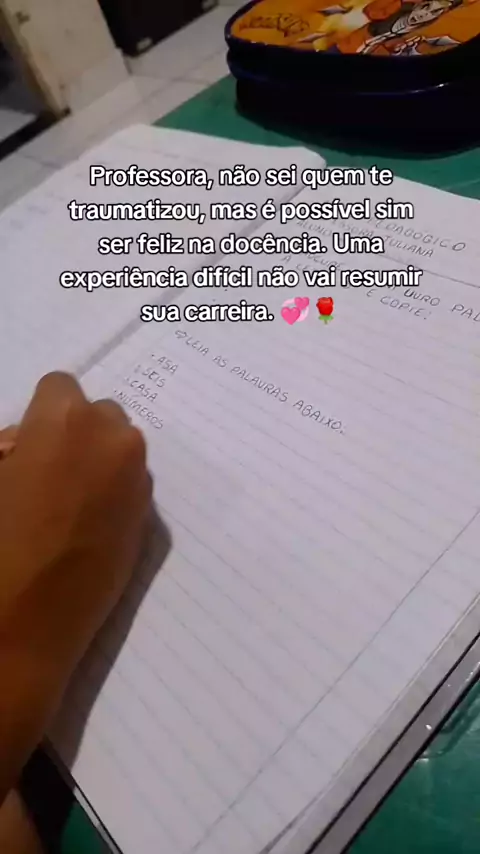 Professora, não sei quem te
traumatizou, mas é possível sim
ser feliz na docência. Uma
experiência difícil não vai resumir
sua carreira. 💞🌹
DAGÓGICO
JULIANA
E COPIE:
⇨ LEIA AS PALAVRAS ABAIXO.
• ASA
• SEIS
• CASA
• NÚMEROS